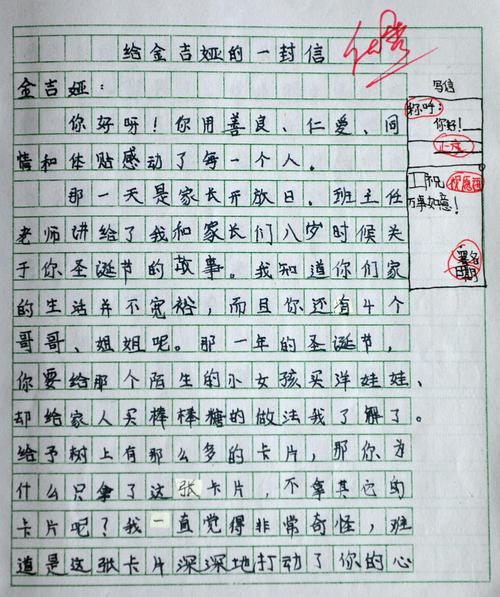 给金吉娅的一封信
金吉娅：
你好呀！你用善良、仁爱、同
情和体贴感动了每一个人。
那一天是家长开放日。班主任
老师讲给了我和家长们八岁时候关
于你圣诞节的故事。我知道你们家
的生活并不宽裕，而且你还有4个
哥哥、姐姐呢。那一年的圣诞节，
你要给那个陌生的小女孩买洋娃娃、
却给家人买棒棒糖的做法我了解了。
给予树上有那么多的卡片，那你为
什么只拿了这张卡片，不拿其它的
卡片呢？我一直觉得非常奇怪，难
道是这张卡片深深地打动了你的心
写信
称呼：
你好！
正文
祝愿语
万事如意！
署名
日期